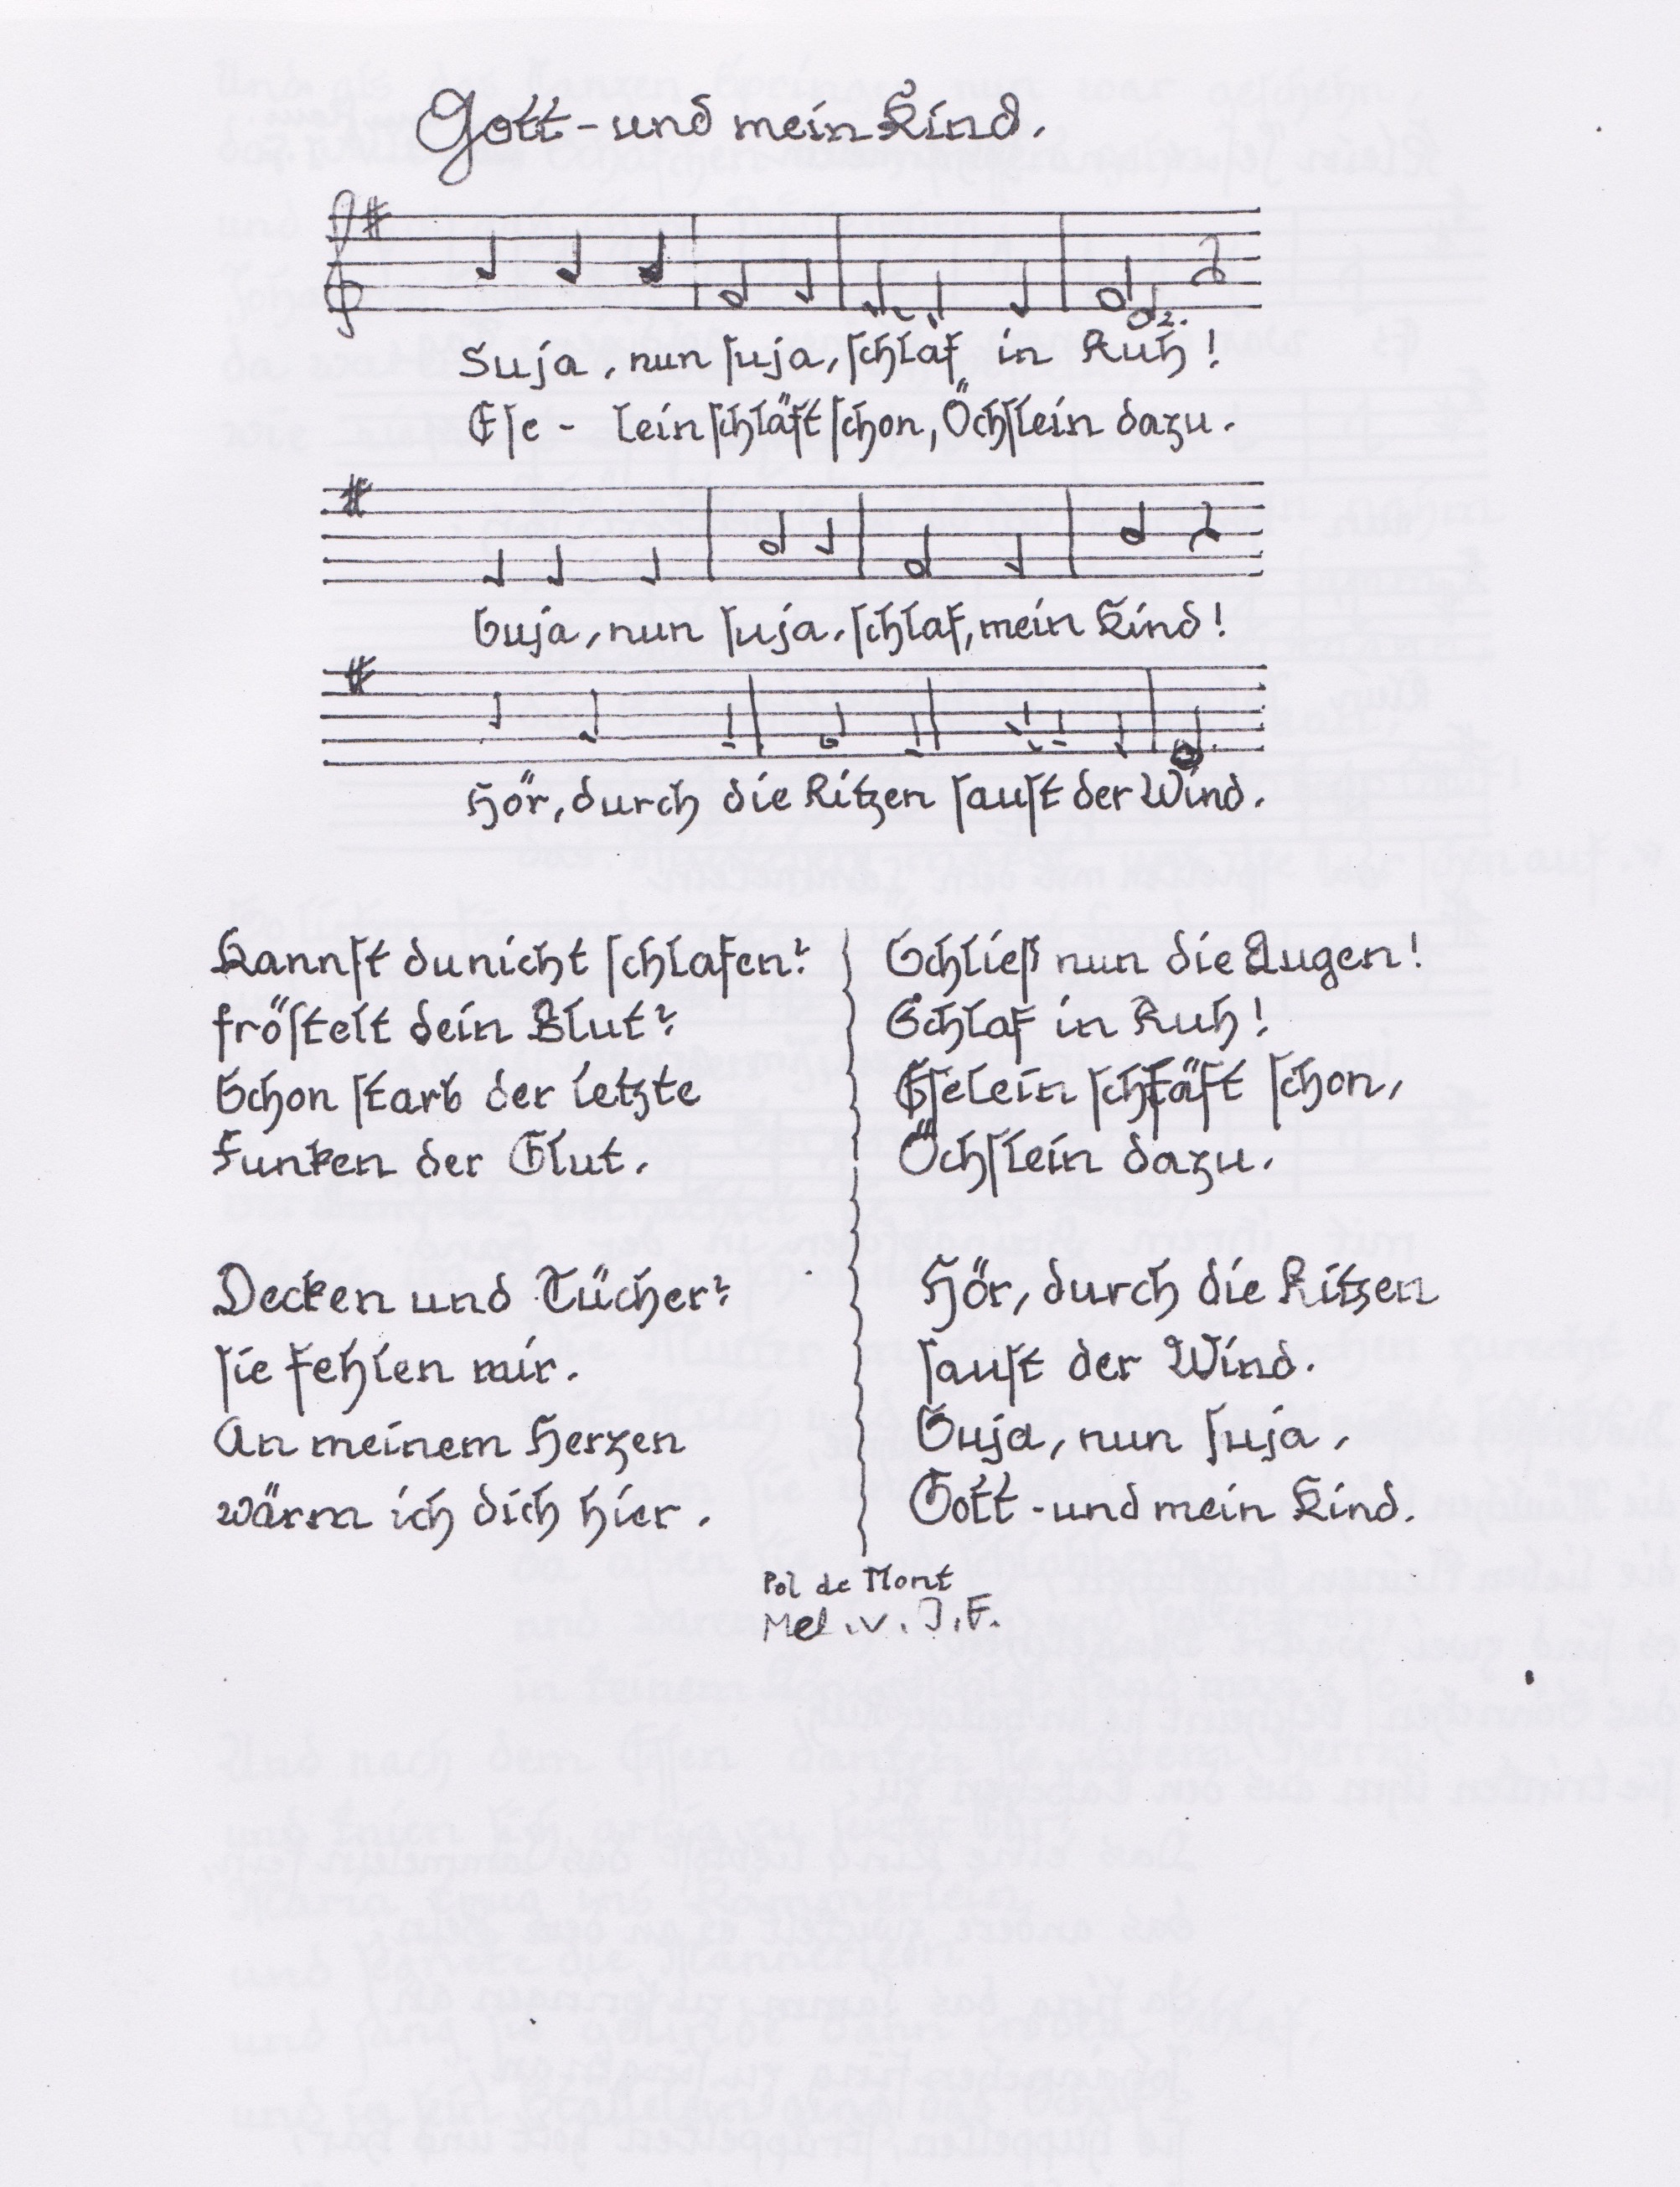 Gott - und mein Kind.
Suja, nun ſuja, ſchlaf in Ruh!
Eſe - lein ſchläft ſchon, Öchſlein dazu.
Suja, nun ſuja, ſchlaf, mein Kind!
Hör, durch die Ritzen ſauſt der Wind.
Kannſt du nicht ſchlafen?
fröſtelt dein Blut?
Schon ſtarb der letzte
Funken der Glut.
Decken und Tücher?
ſie fehlen mir.
An meinem Herzen
wärm ich dich hier.
Schließ nun die Augen!
Schlaf in Ruh!
Eſelein ſchläft ſchon,
Öchſlein dazu.
Hör, durch die Ritzen
ſauſt der Wind.
Suja, nun ſuja,
Gott - und mein Kind.
Pol de Mont
Mel. v. J. F.